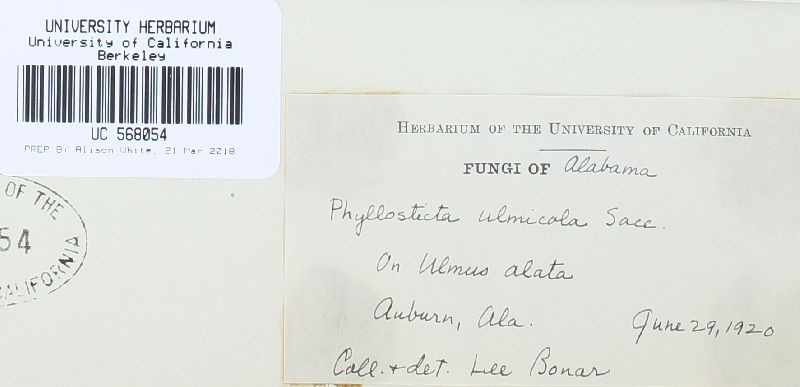 UNIVERSITY HERBARIUM
University of California
Berkeley
UC 568054
PREP BY Alison White, 21 Mar 2018
OF THE
54
CALIFORNIA
HERBARIUM OF THE UNIVERSITY OF CALIFORNIA
FUNGI OF Alabama
Phyllosticta ulmicola Sacc.
On Ulmus alata
Auburn, Ala. June 29, 1920
Coll. + det. Lee Bonar